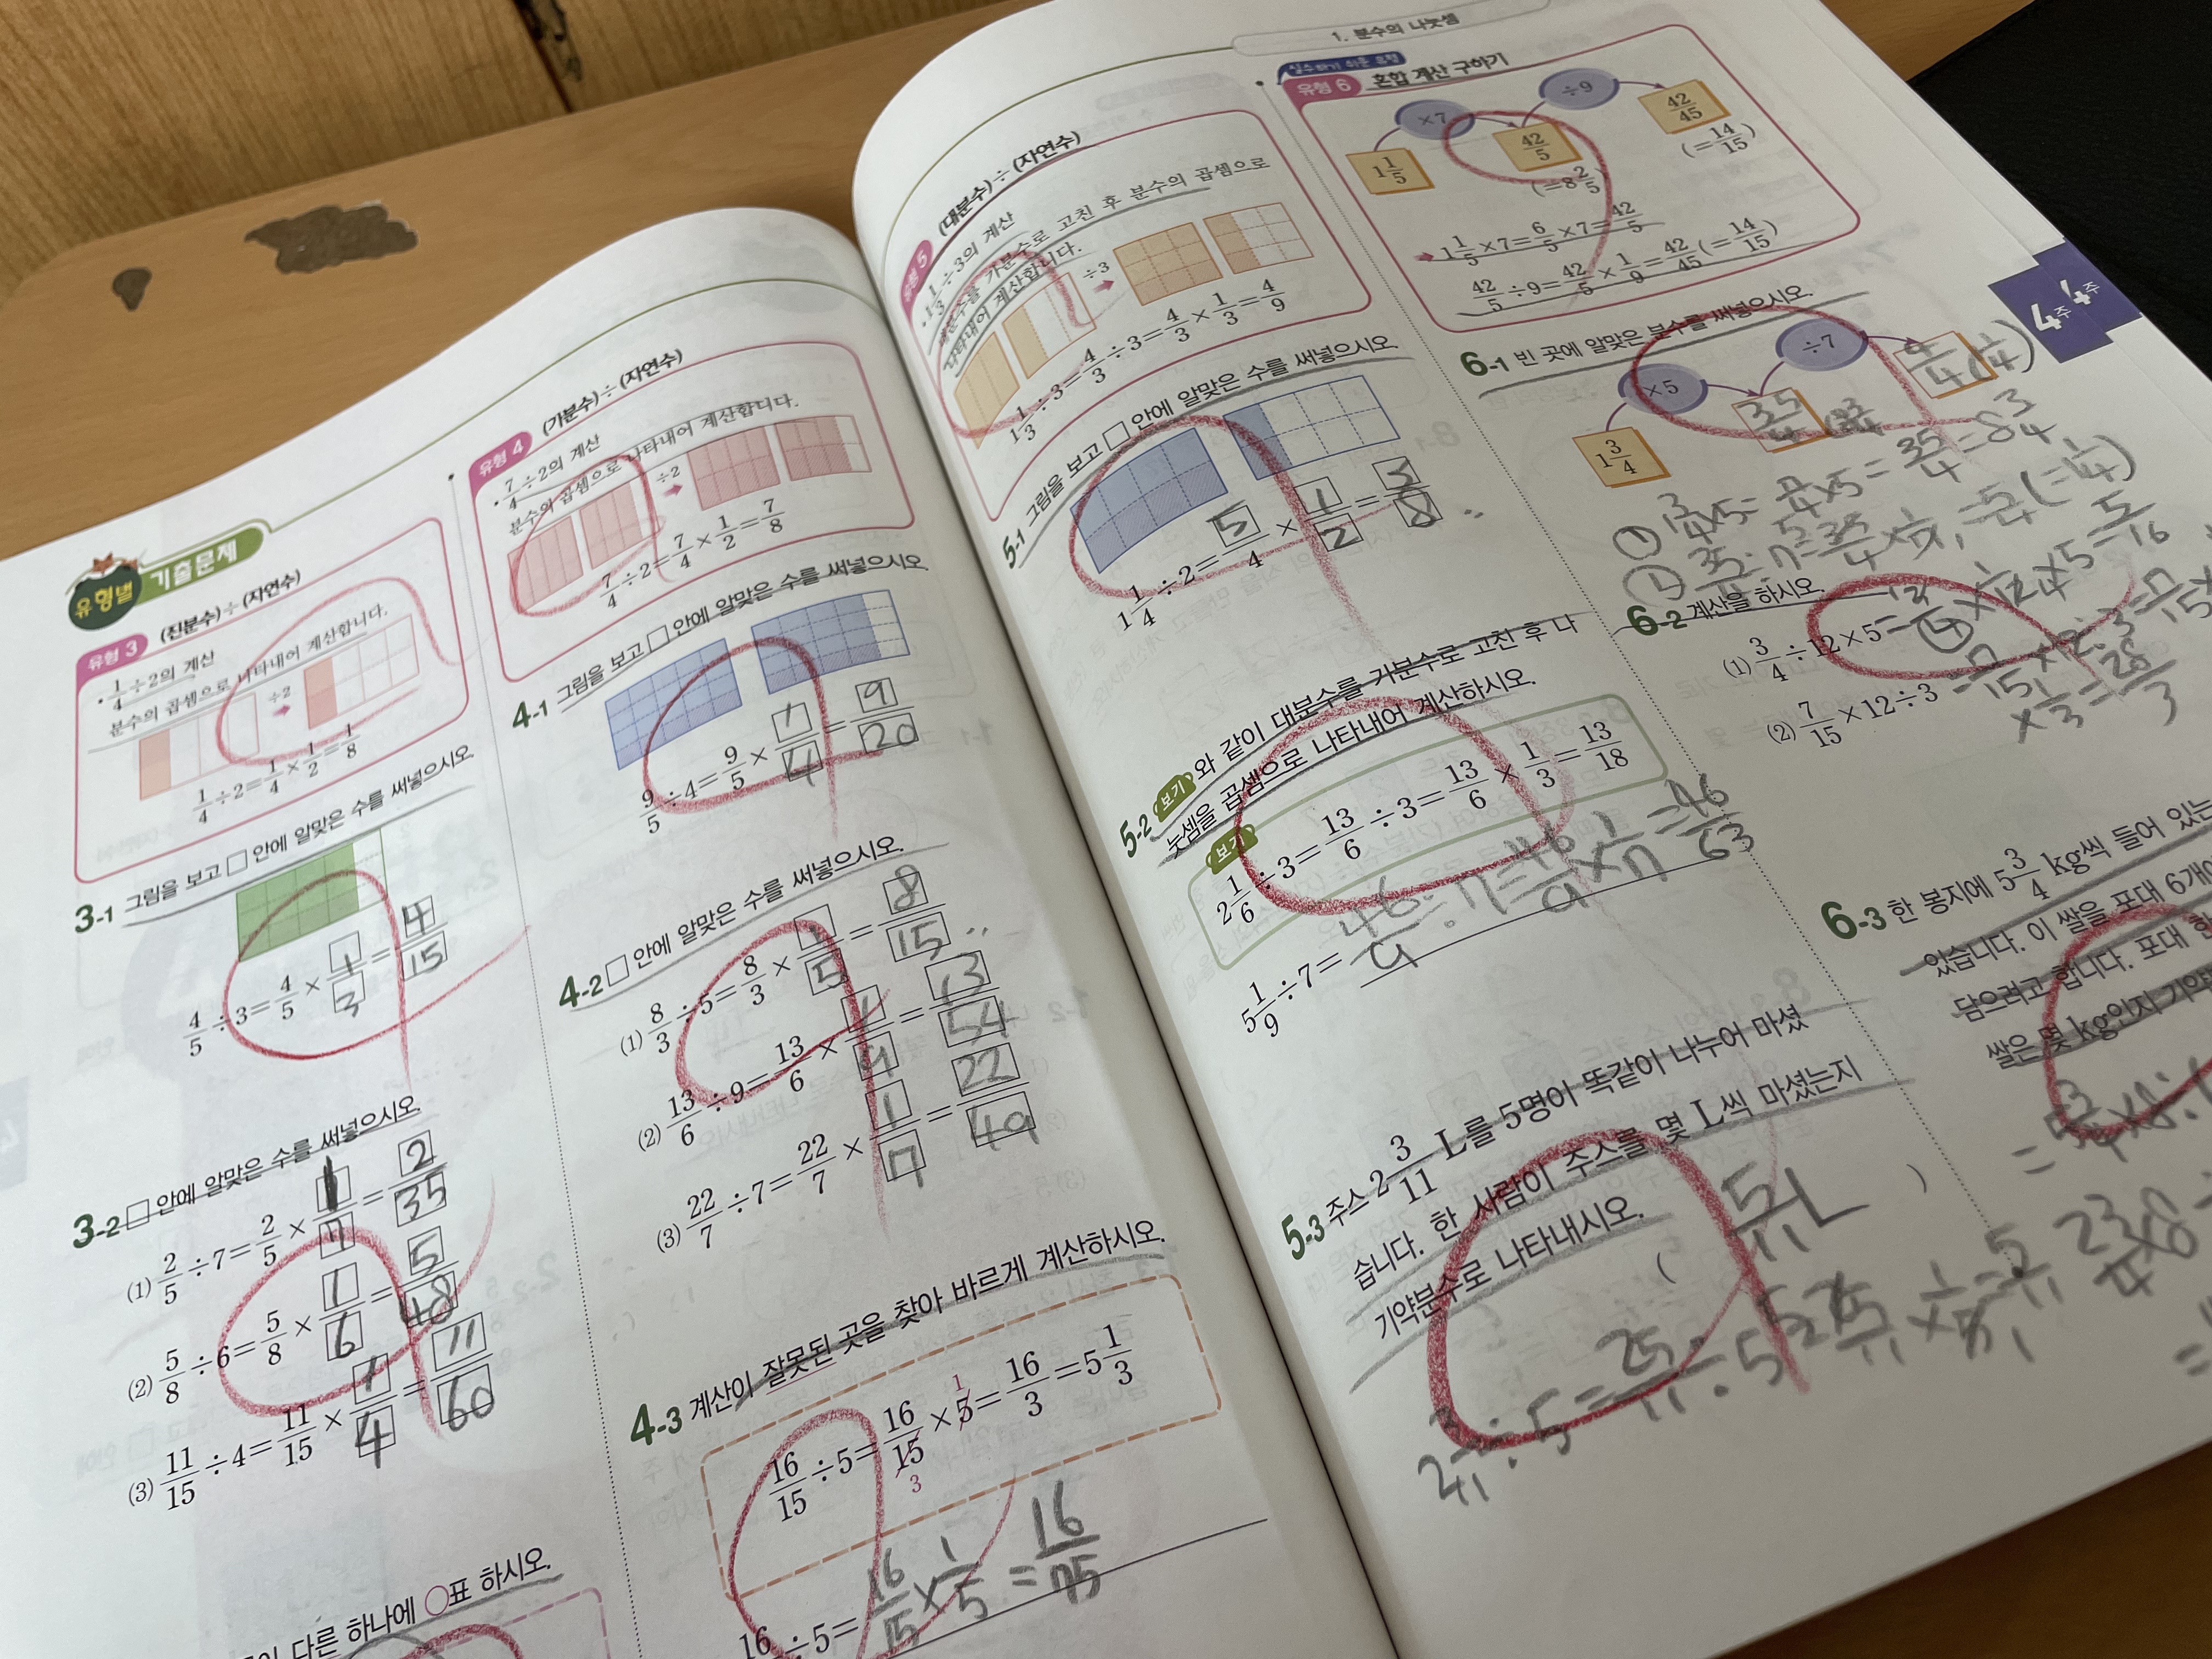 유형별 기출문제
유형 3 (진분수)÷(자연수)
• 1/4÷2의 계산
분수의 곱셈으로 나타내어 계산합니다.
÷2
1/4÷2=1/4×1/2=1/8
3-1 그림을 보고 □ 안에 알맞은 수를 써넣으시오.
4/5÷3=4/5×1/3=4/15
3-2 □ 안에 알맞은 수를 써넣으시오.
(1) 2/5÷7=2/5×1/7=2/35
(2) 5/8÷6=5/8×1/6=5/48
(3) 11/15÷4=11/15×1/4=11/60
다른 하나에 ○표 하시오.
유형 4 (가분수)÷(자연수)
• 7/4÷2의 계산
분수의 곱셈으로 나타내어 계산합니다.
÷2
7/4÷2=7/4×1/2=7/8
4-1 그림을 보고 □ 안에 알맞은 수를 써넣으시오.
9/5÷4=9/5×1/4=9/20
4-2 □ 안에 알맞은 수를 써넣으시오.
(1) 8/3÷5=8/3×1/5=8/15
(2) 13/6÷9=13/6×1/9=13/54
(3) 22/7÷7=22/7×1/7=22/49
4-3 계산이 잘못된 곳을 찾아 바르게 계산하시오.
16/15÷5=16/15×5=16/3=5 1/3
1
3
16
÷5=16/15×1/5=16/75
1. 분수의 나눗셈
유형 5 (대분수)÷(자연수)
• 1 1/3÷3의 계산
대분수를 가분수로 고친 후 분수의 곱셈으로
나타내어 계산합니다.
÷3
1 1/3÷3=4/3÷3=4/3×1/3=4/9
5-1 그림을 보고 □ 안에 알맞은 수를 써넣으시오.
1 1/4÷2=5/4×1/2=5/8
5-2 보기와 같이 대분수를 가분수로 고친 후 나
눗셈을 곱셈으로 나타내어 계산하시오.
보기
2 1/6÷3=13/6÷3=13/6×1/3=13/18
5 1/9÷7=46/9÷7=46/9×1/7=46/63
5-3 주스 2 3/11 L를 5명이 똑같이 나누어 마셨
습니다. 한 사람이 주스를 몇 L씩 마셨는지
기약분수로 나타내시오.
( 5/11 L )
2 3/11÷5=25/11÷5=
실수하기 쉬운 유형
유형 6 혼합 계산 구하기
1 1/5 ×7 42/5 ÷9 42/45
(=8 2/5) (=14/15)
1 1/5×7=6/5×7=42/5
42/5÷9=42/5×1/9=42/45(=14/15)
6-1 빈 곳에 알맞은 분수를 써넣으시오.
1 3/4 ×5 35/4 ÷7
① 1 3/4×5=7/4×5=35/4=8 3/4
6-2 계산을 하시오.
(1) 3/4÷12×5=
(2) 7/15×12÷3
×1/3=28/3
6-3 한 봉지에 5 3/4 kg씩 들어 있는
있습니다. 이 쌀을 포대 6개에
담으려고 합니다. 포대 한
쌀은 몇 kg인지 기약
4주
4주